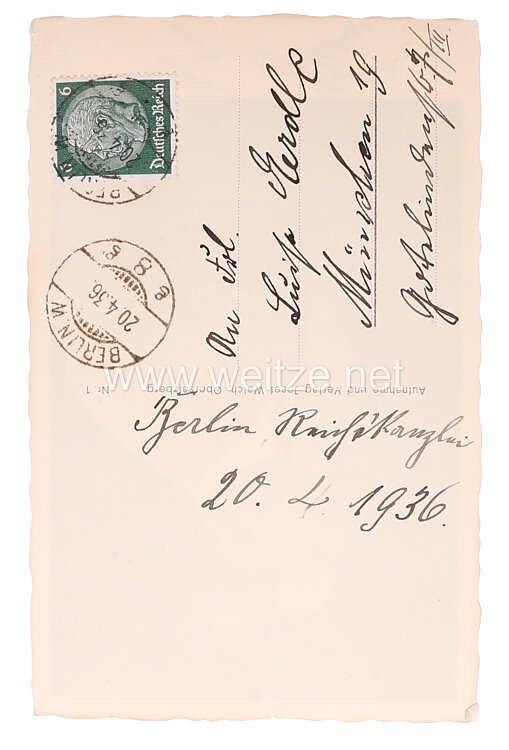 6
Deutsches Reich
BERLIN W
20.4.36.
8
An Frl.
Luise
München 19
III
www.weitze.net
Aufnahme und Verlag Josef Walch, Obersalzberg. Nr. 1
Berlin Reichskanzlei
20. 4. 1936.